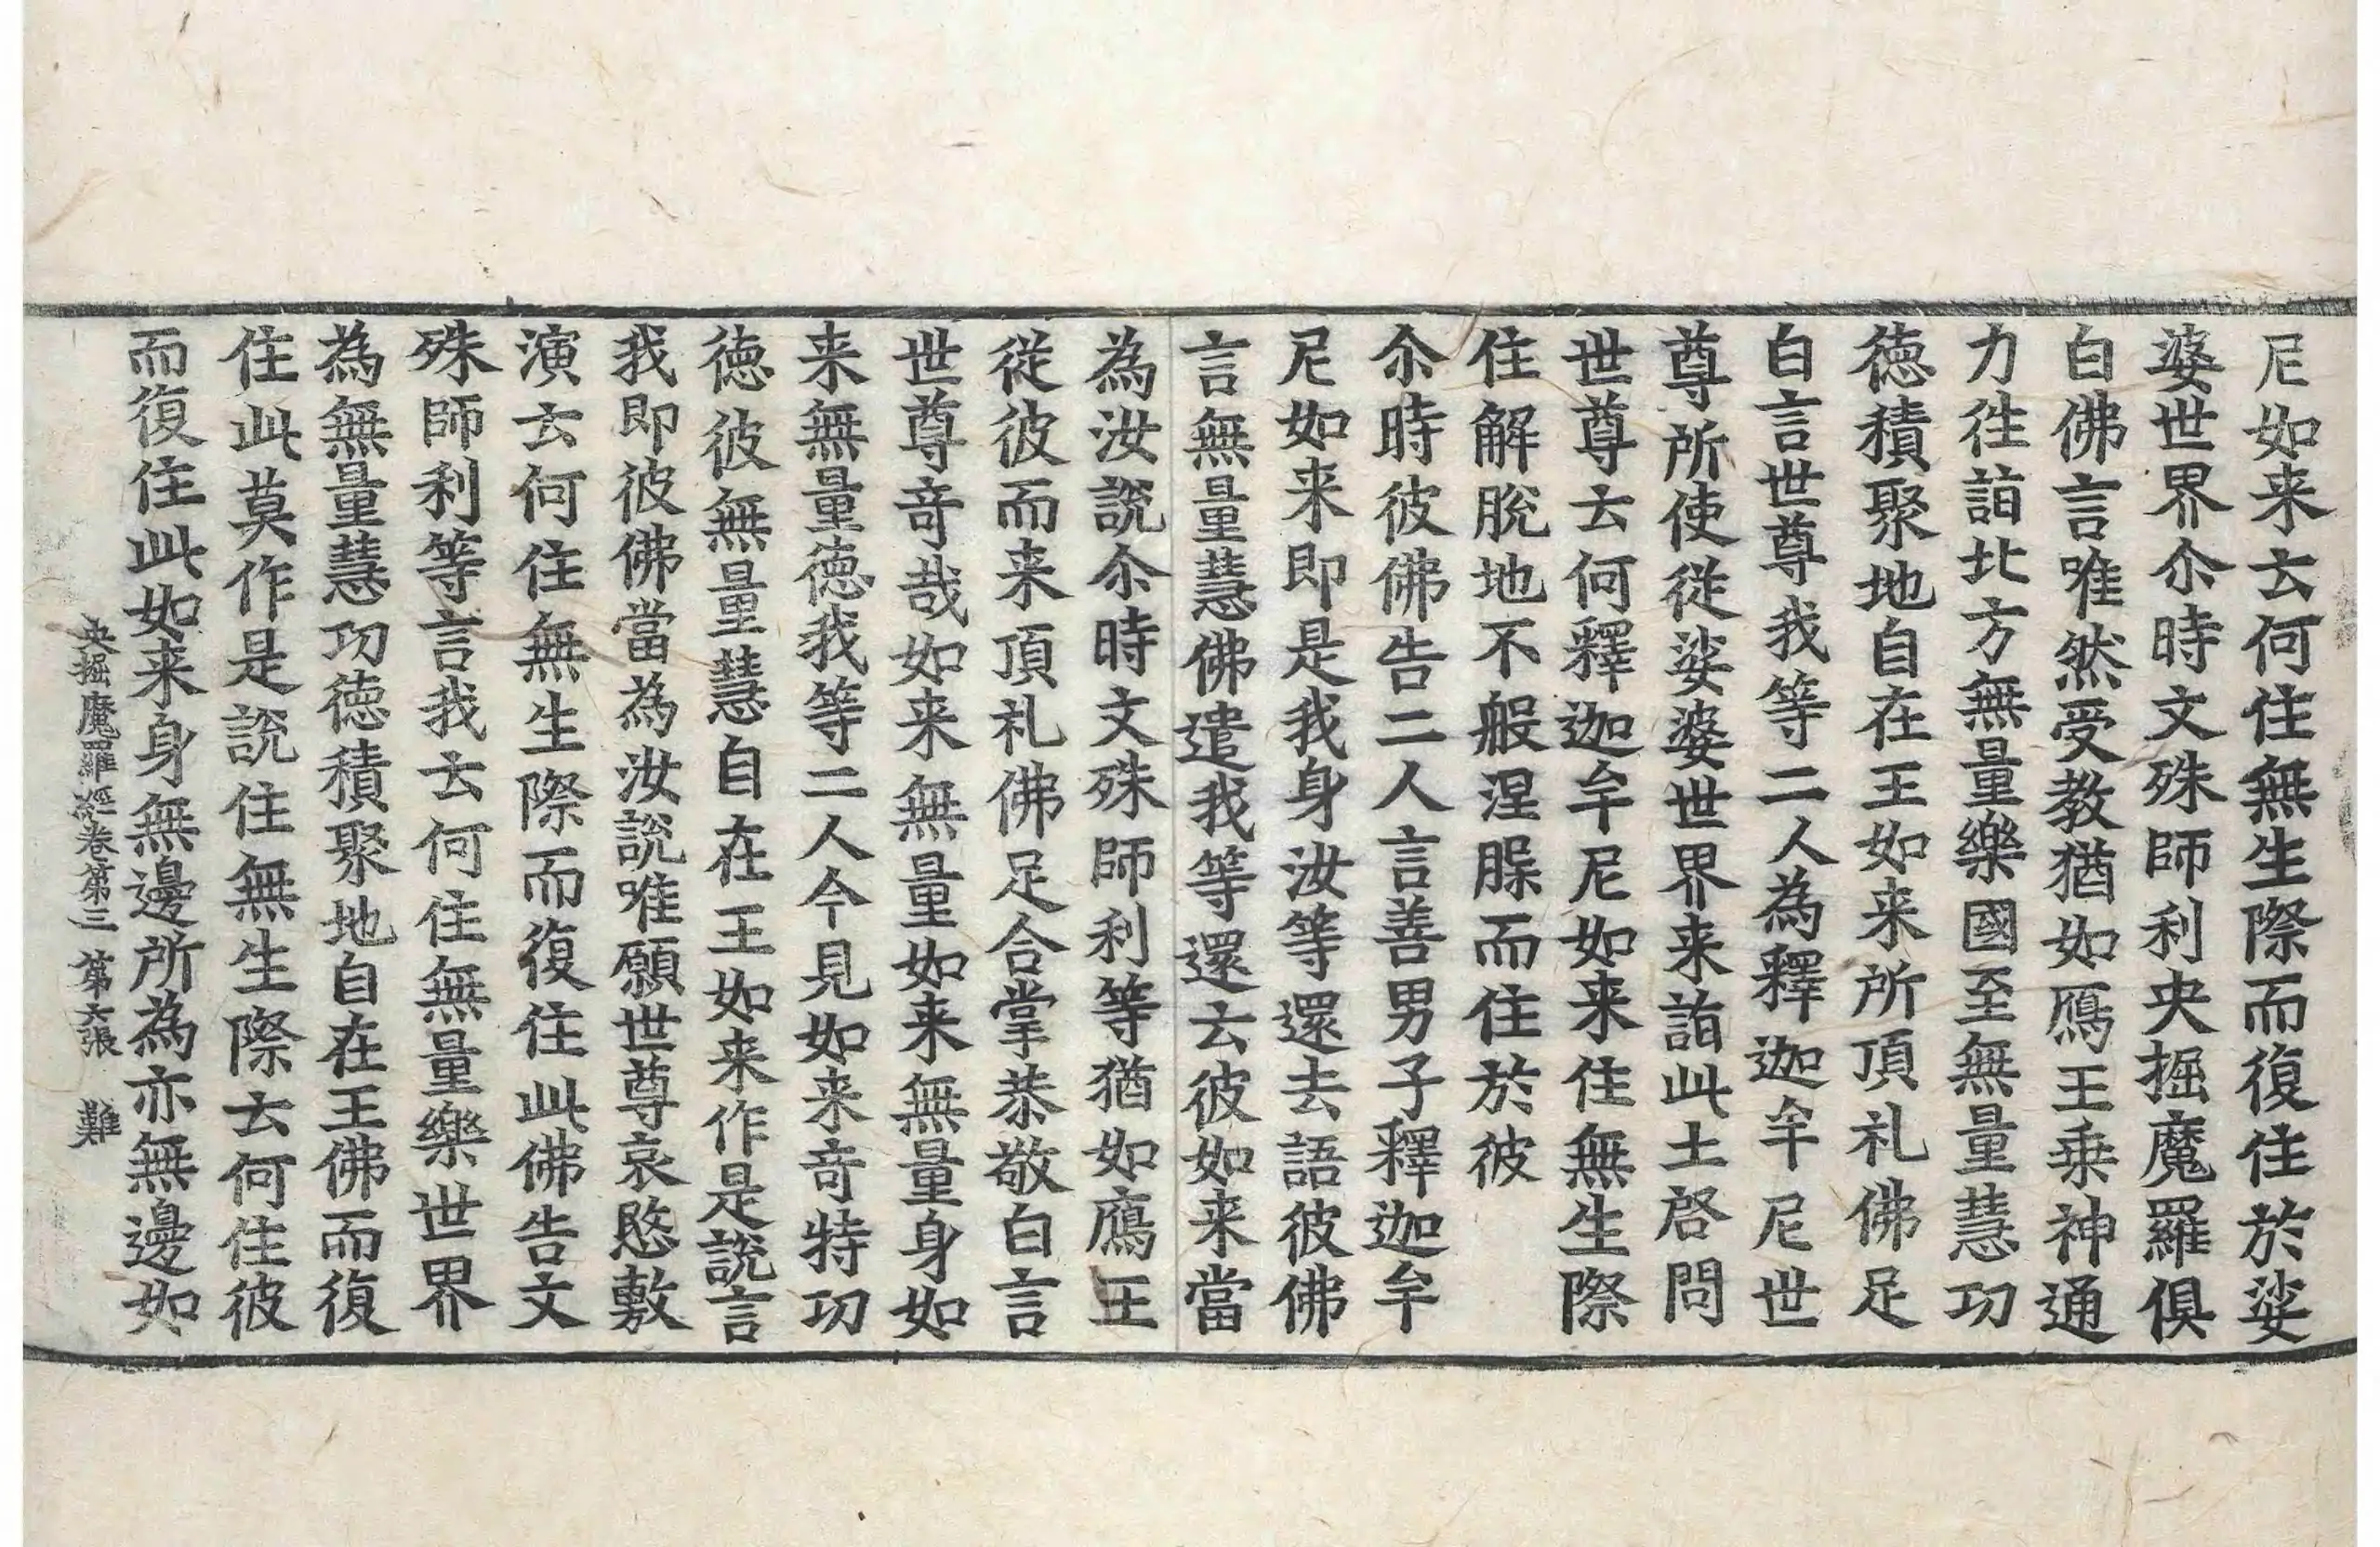 尼如来去何住無生際而復住於娑
婆世界尒時文殊師利央掘魔羅俱
白佛言唯然受教猶如鴈王乗神通
力徃詣北方無量樂國至無量慧功
徳積聚地自在王如来所頂礼佛足
白言世尊我等二人為釋迦牟尼世
尊所使従娑婆世界来詣此土啓問
世尊云何釋迦牟尼如来住無生際
住解脫地不般涅槃而住於彼
尒時彼佛告二人言善男子釋迦牟
尼如来即是我身汝等還去語彼佛
言無量慧佛遣我等還云彼如来當
為汝說尒時文殊師利等猶如鴈王
従彼而来頂礼佛足合掌恭敬白言
世尊奇哉如来無量如来無量身如
来無量徳我等二人今見如来奇特功
徳彼無量慧自在王如来作是說言
我即彼佛當為汝說唯願世尊哀愍敷
演云何住無生際而復住此佛告文
殊師利等言我云何住無量樂世界
為無量慧功徳積聚地自在王佛而復
住此莫作是說住無生際云何住彼
而復住此如来身無邊所為亦無邊如
央掘魔羅經卷第三 第六張 難